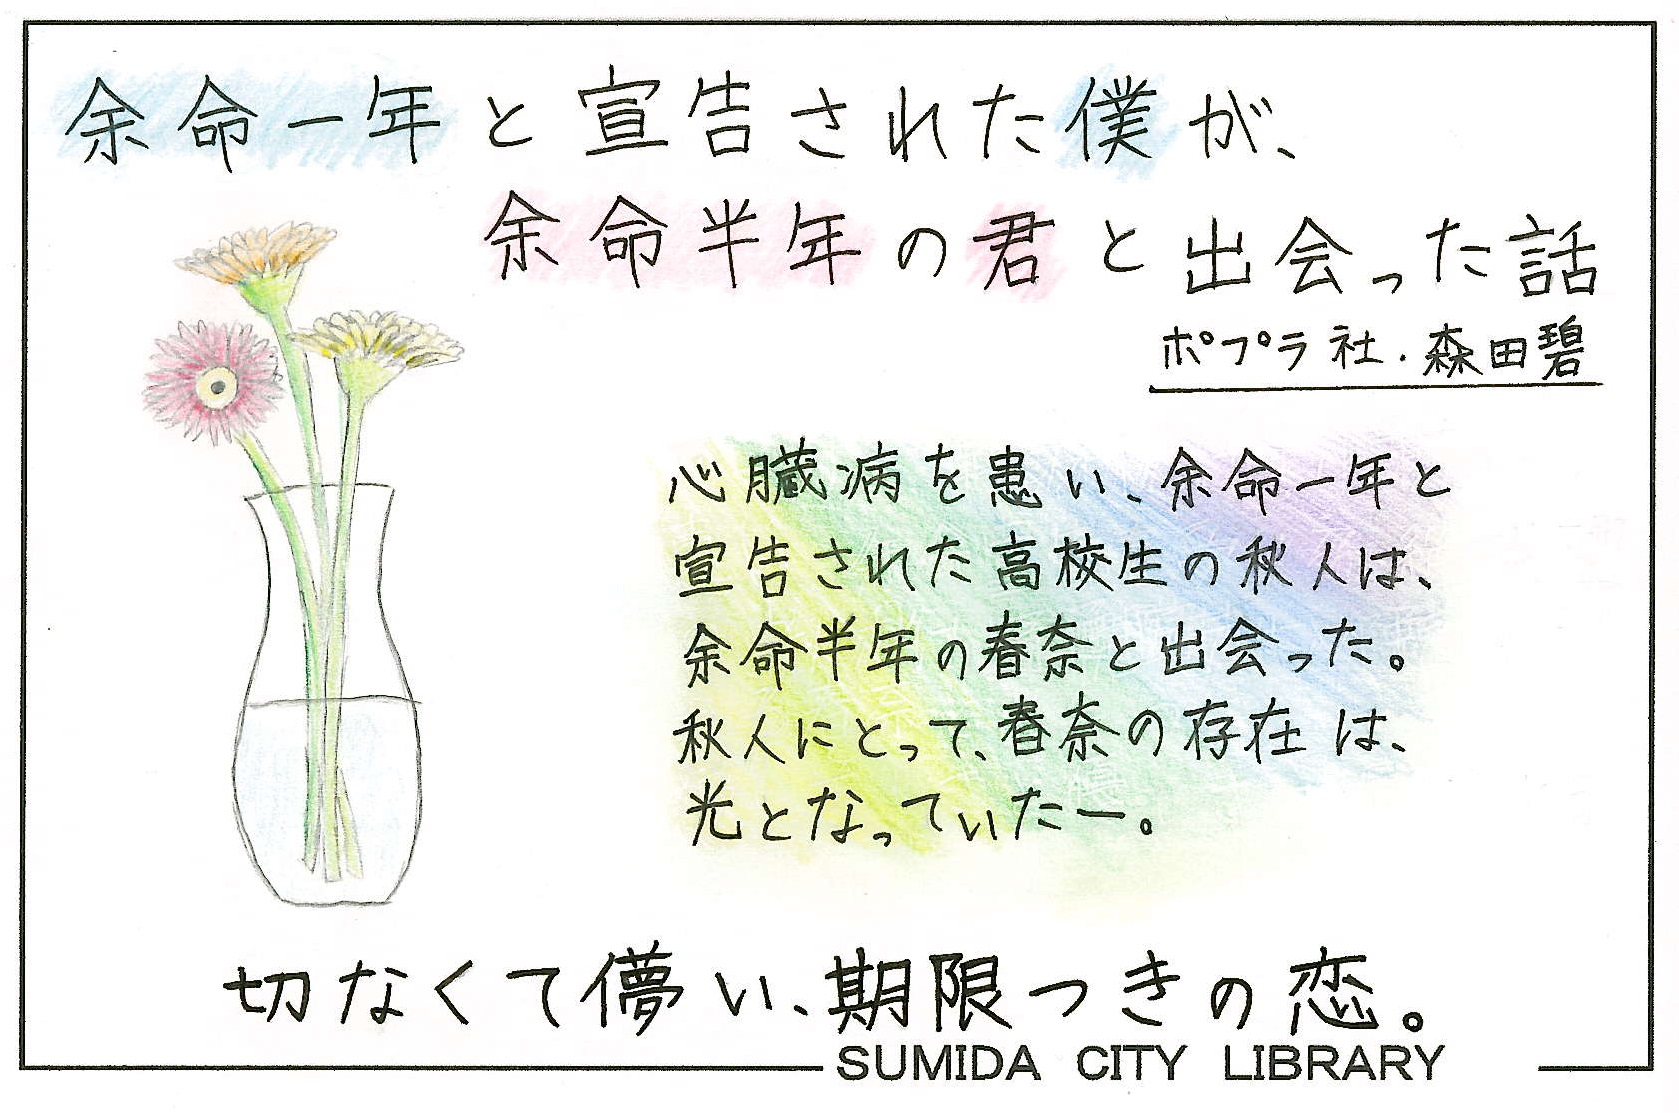 余命一年と宣告された僕が、
余命半年の君と出会った話
ポプラ社.森田碧
心臓病を患い、余命一年と
宣告された高校生の秋人は、
余命半年の春奈と出会った。
秋人にとって、春奈の存在は、
光となっていたー。
切なくて儚い、期限つきの恋。
SUMIDA CITY LIBRARY